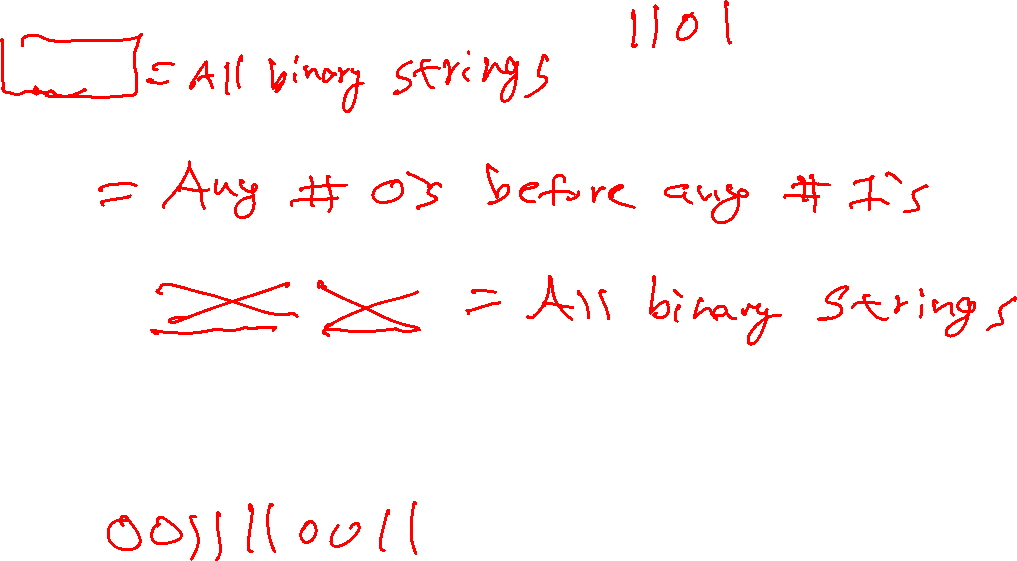 1101
= All binary strings
= Any # 0's before any # 1's
= All binary strings
0011110011